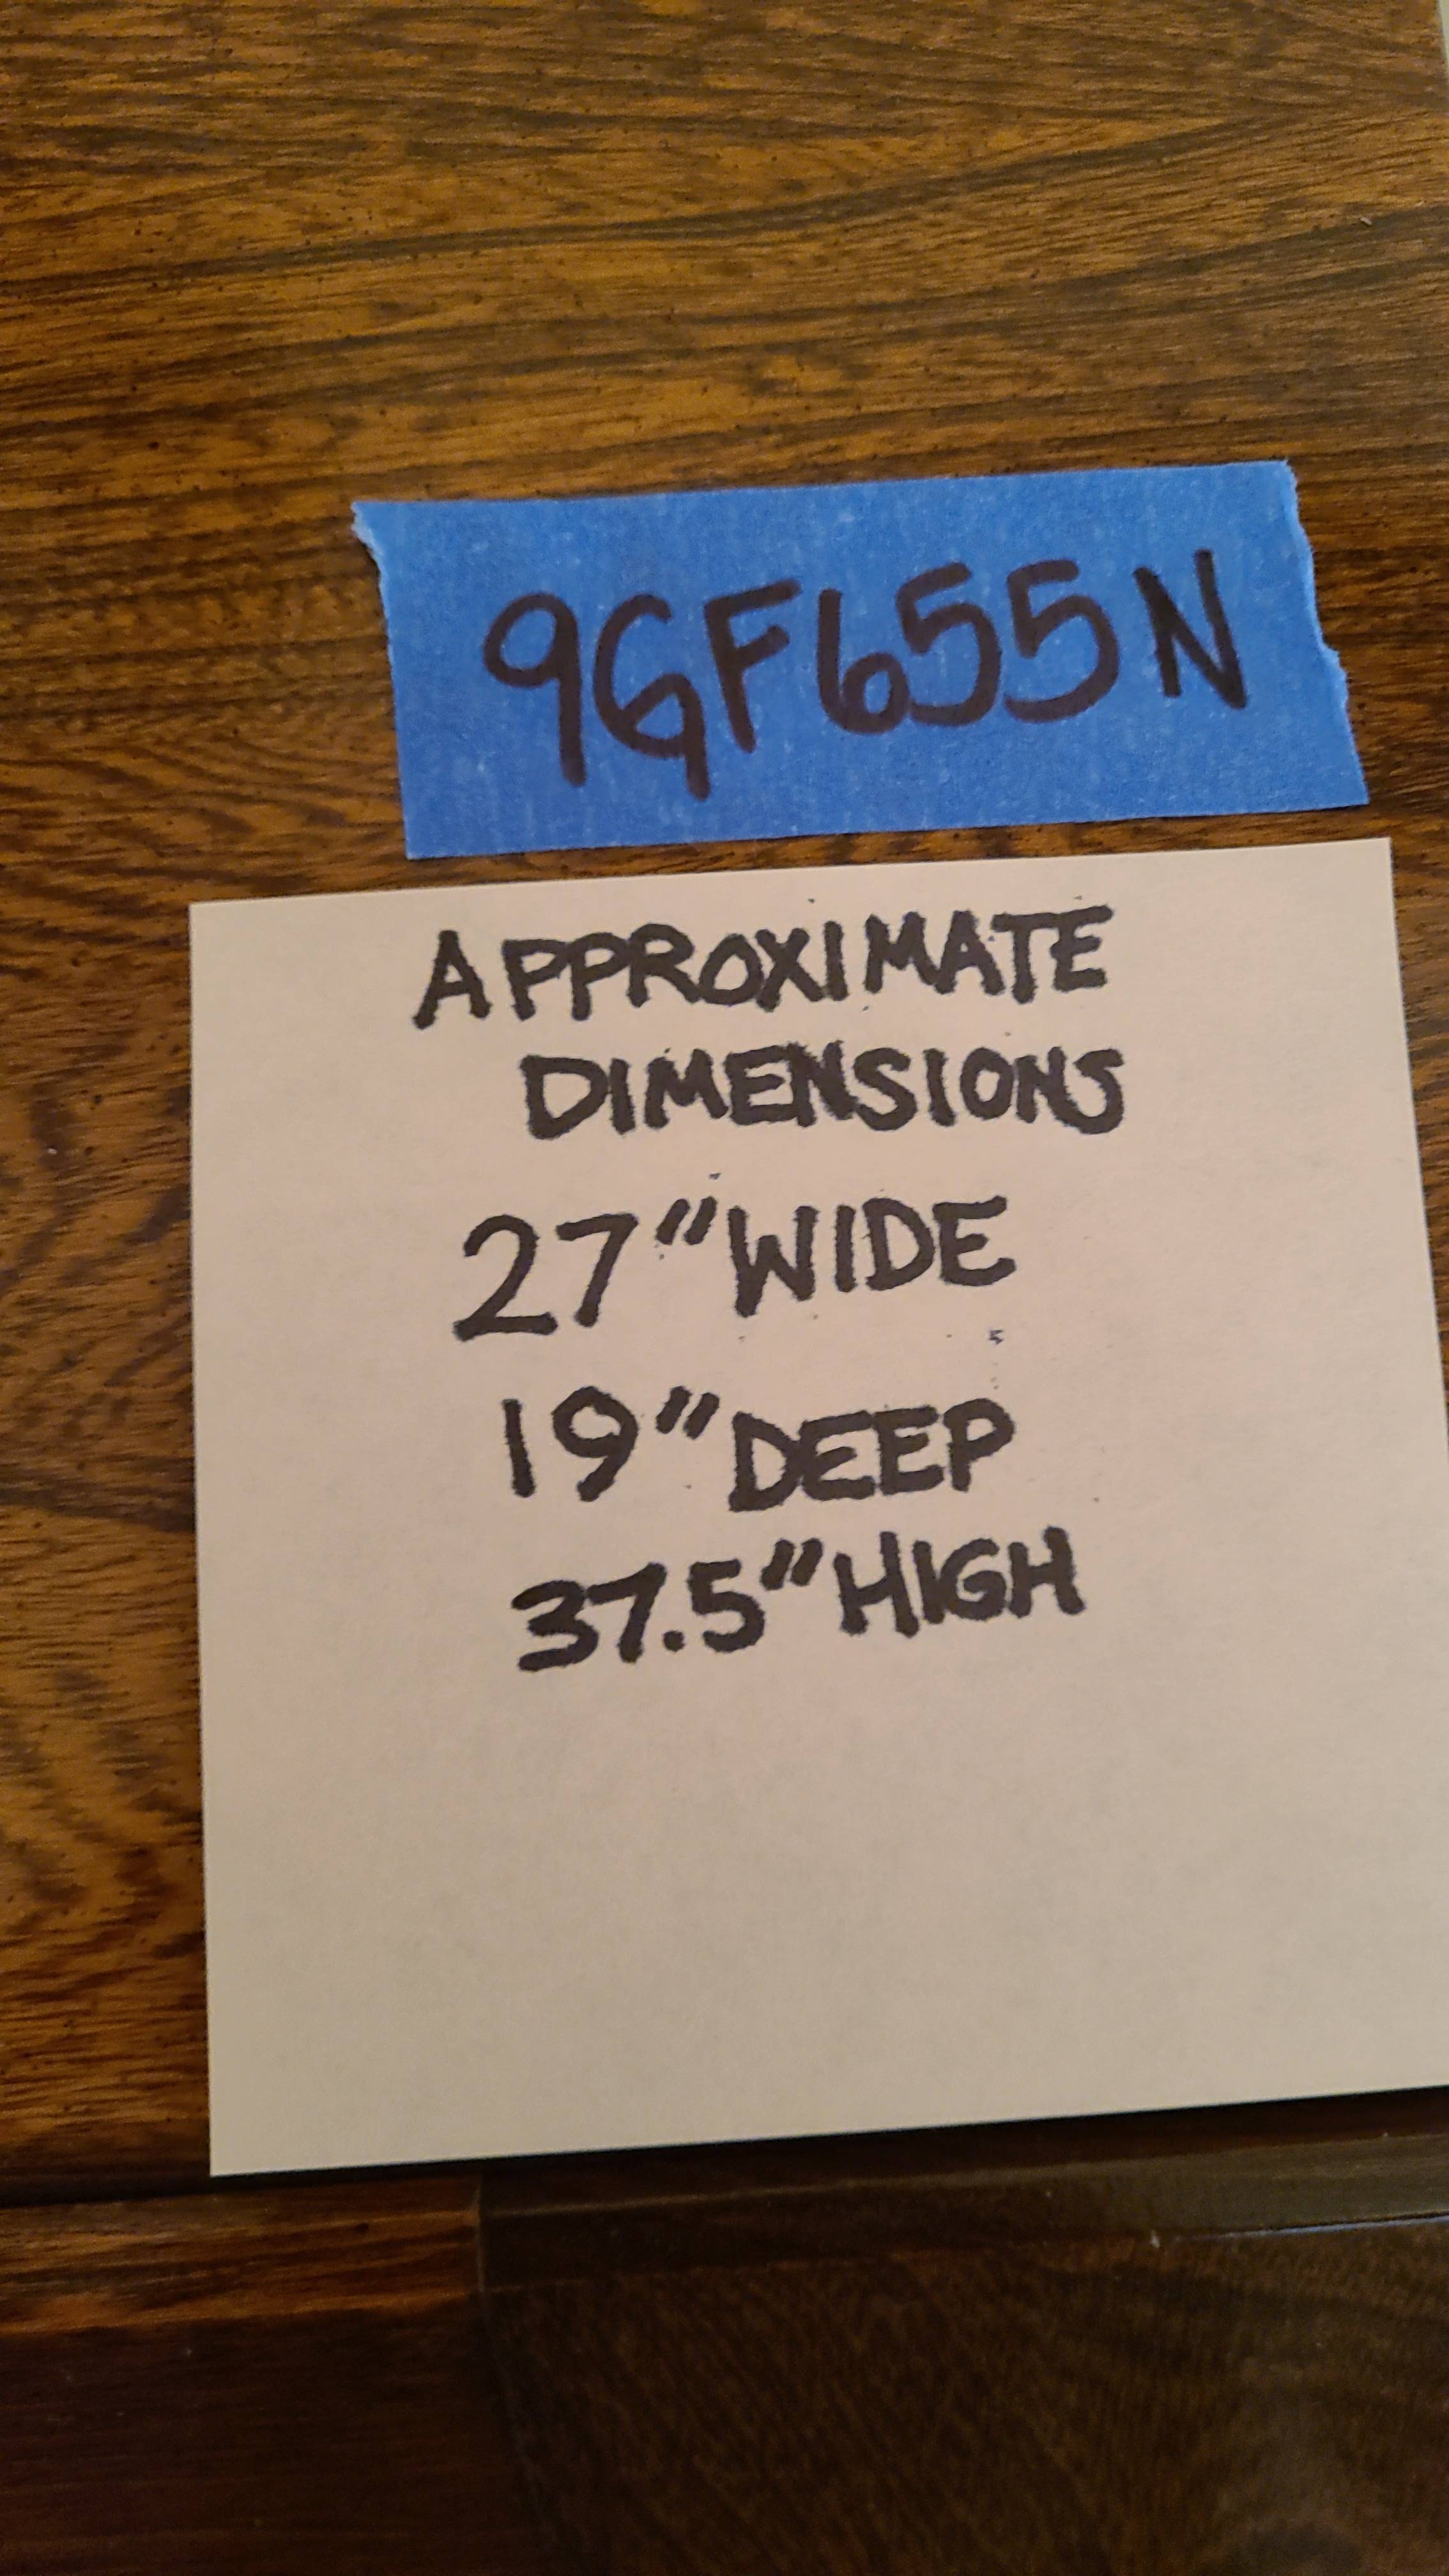 9GF655N
APPROXIMATE
DIMENSIONS
27" WIDE
19" DEEP
37.5" HIGH